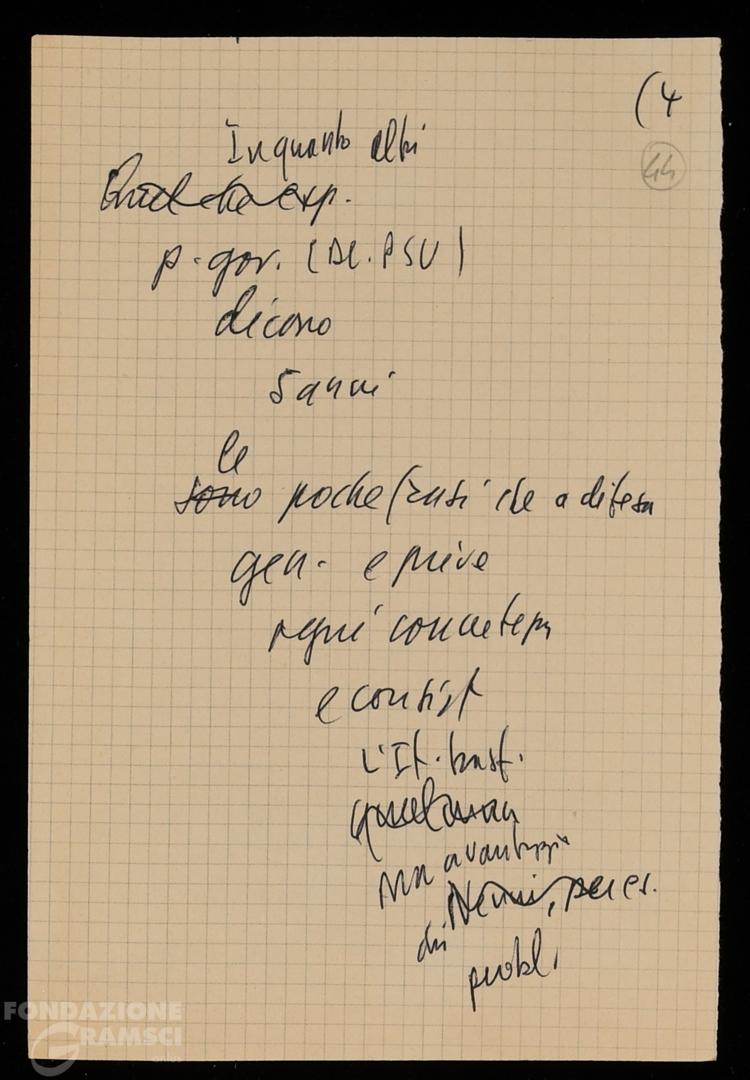 (4
44
In quanto altri
exp.
p. gov. (DC. PSU)
dicono
5 anni
le
sono poche frasi che a difesa
gen. e prive
ogni concretezza
e consist
L'It. trasf.
ma avantaggi
di Nenni, per es.
probl.
FONDAZIONE
GRAMSCI
onlus